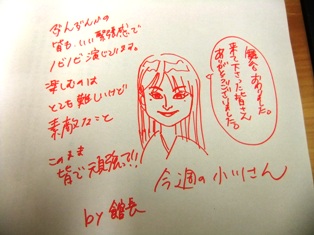 皆も、いい緊張感で
ノビノビ演じています。
楽しむのは
とても難しいけど
素敵なこと
このまま
皆で頑張って!!
無事おわりました。
来て下さった皆さん
ありがとうございました。
今週の小川さん
by 館長